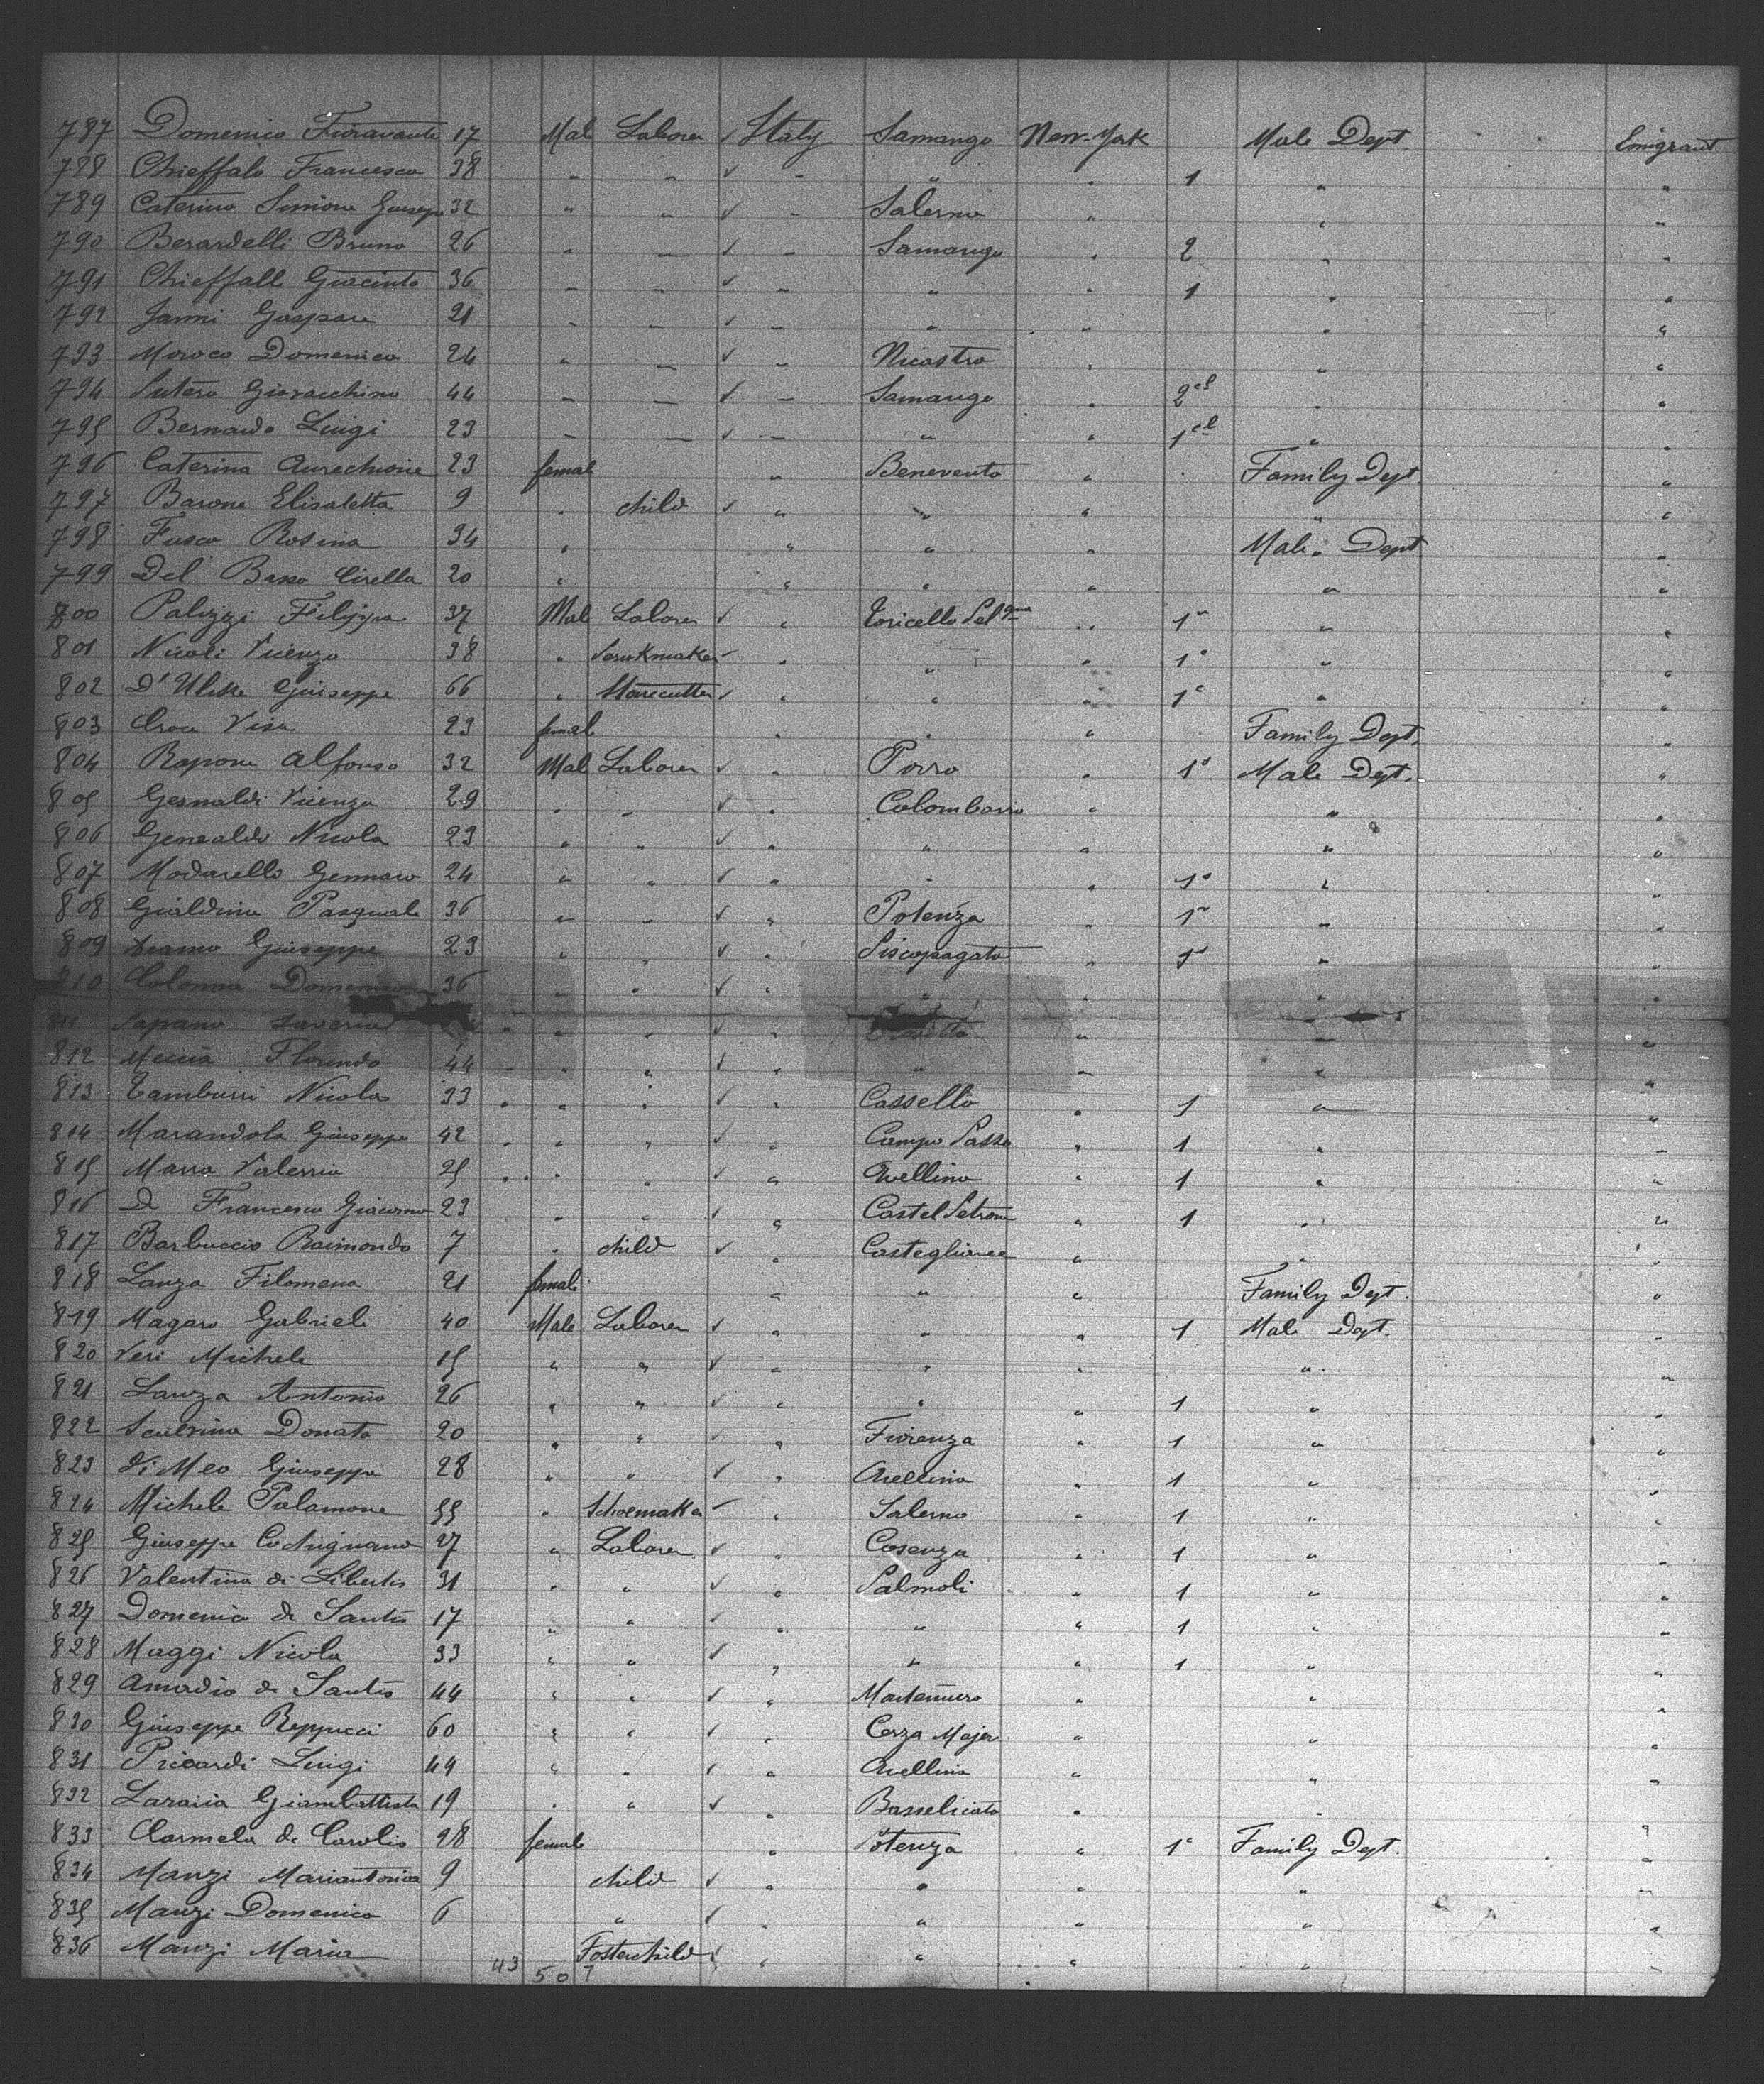 787 Domenico Fioravante 17 Mal Labore ✓ Italy Samango New-York Male Dept. Emigrant
788 Chieffalo Francesco 38 " " ✓ " " " 1 " "
789 Caterino Simione Giuseppe 32 " " ✓ " Salerno " " "
790 Berardelli Bruno 26 " " ✓ " Samango " 2 " "
791 Chieffall Giacinto 36 " " ✓ " " " 1 " "
792 Janni Gaspare 21 " " ✓ " " " " "
793 Moroco Domenico 24 " " ✓ " Nicastro " " "
794 Sutero Giovacchino 44 " " ✓ " Samango " 2 " "
795 Bernardo Luigi 23 " " ✓ " " " 1 " "
796 Caterina 23 femal " Benevento " Family Dept. "
797 Barone Elisabetta 9 " child ✓ " " " " "
798 Fusco Rosina 34 " " " " Male Dept "
799 Del Basso Cirella 20 " " " " " "
800 Palizzi Filippo 37 Mal Labore ✓ " Toricello " 1 " "
801 Nicoli Vicenzo 38 " ✓ " " " 1 " "
802 Giuseppe 66 " Stonecutter ✓ " " " 1 " "
803 Croce Visa 23 femal " " " Family Dept. "
804 Rapone Alfonso 32 Mal Laborer ✓ " Porro " 1 Male Dept. "
805 Gesnaldi Vicenzo 29 " " ✓ " Colombarro " " "
806 Genealdo Nicola 23 " " ✓ " " " " "
807 Modarello Gennaro 24 " " ✓ " " " 1 " "
808 Gialdino Pasquale 36 " " ✓ " Potenza " 1 " "
809 Giuseppe 23 " " ✓ " Siscopagato " 1 " "
810 Colonna Domenico 36 " " ✓ " " " " "
Sapano Saverio " " ✓ " " " "
812 Florindo 44 " " ✓ " " " " "
813 Tamburri Nicola 33 " " ✓ " Cassello " 1 " "
814 Marandola Giuseppe 42 " " ✓ " Campo Basso " 1 " "
815 Marra Valerrio 25 " " ✓ " Avellino " 1 " "
816 De Francesco Giacomo 23 " " ✓ " Castel Petroso " 1 " "
817 Barbuccio Raimondo 7 " child ✓ " " " "
818 Lanza Filomena 21 femali " " " Family Dept. "
819 Magaro Gabriele 40 Male Laborer ✓ " " " 1 Male Dept. "
820 Veri Michele 15 " " ✓ " " " " "
821 Lanza Antonio 26 " " ✓ " " " 1 " "
822 Donato 20 " " ✓ " Fiorenza " 1 " "
823 Di Meo Giuseppe 28 " " ✓ " Avellino " 1 " "
824 Michele Palamone 55 " Schoemaker ✓ " Salerno " 1 " "
825 Giuseppe 27 " Laborer ✓ " Cosenza " 1 " "
826 Valentino di Libertis 31 " " ✓ " Palmoli " 1 " "
827 Domenico di Santis 17 " " ✓ " " " 1 " "
828 Maggi Nicola 33 " " ✓ " " " 1 " "
829 Amodio di Santis 44 " " ✓ " " " "
830 Giuseppe Reppucci 60 " " ✓ " Cerza Major " " "
831 Piccardi Luigi 44 " " ✓ " Avellino " " "
832 Laraiia Giambattista 19 " " ✓ " Basselicata " " "
833 Carmela di Carolis 28 female " Potenza " 1 Family Dept. "
834 Manzi Mariantonia 9 child ✓ " " " " "
835 Manzi Domenico 6 " ✓ " " " " "
836 Manzi Maria Fosterchild ✓ " " " " "
43 50 7